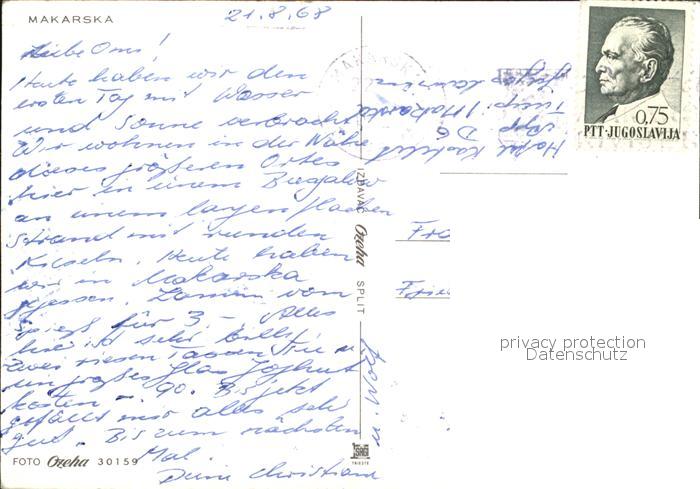 MAKARSKA
21.8.68
Liebe Omi!
Heute haben wir den
ersten Tag mit Wasser
und Sonne verbracht.
Wir wohnen in der Nähe
dieses größeren Ortes
hier in einem
an einem langen flachen
Strand mit runden
Kieseln. Heute haben
wir in Makarska
gegessen. vom
Spieß für 3.- Alles
hier ist sehr billig.
zwei riesen Tassen Tee u.
ein großes Glas Joghurt
kosten -.90. Bis jetzt
gefällt mir alles sehr
gut. Bis zum nächsten
Mal.
Dein Christian
FOTO Ozeha 30159
IZDAVAČ Ozeha SPLIT
TRIESTE
MAKARSKA
Hotel
App D6
Tucepi / Makarska
Jugoslawien
0,75
PTT-JUGOSLAVIJA
Fra
privacy protection
Datenschutz